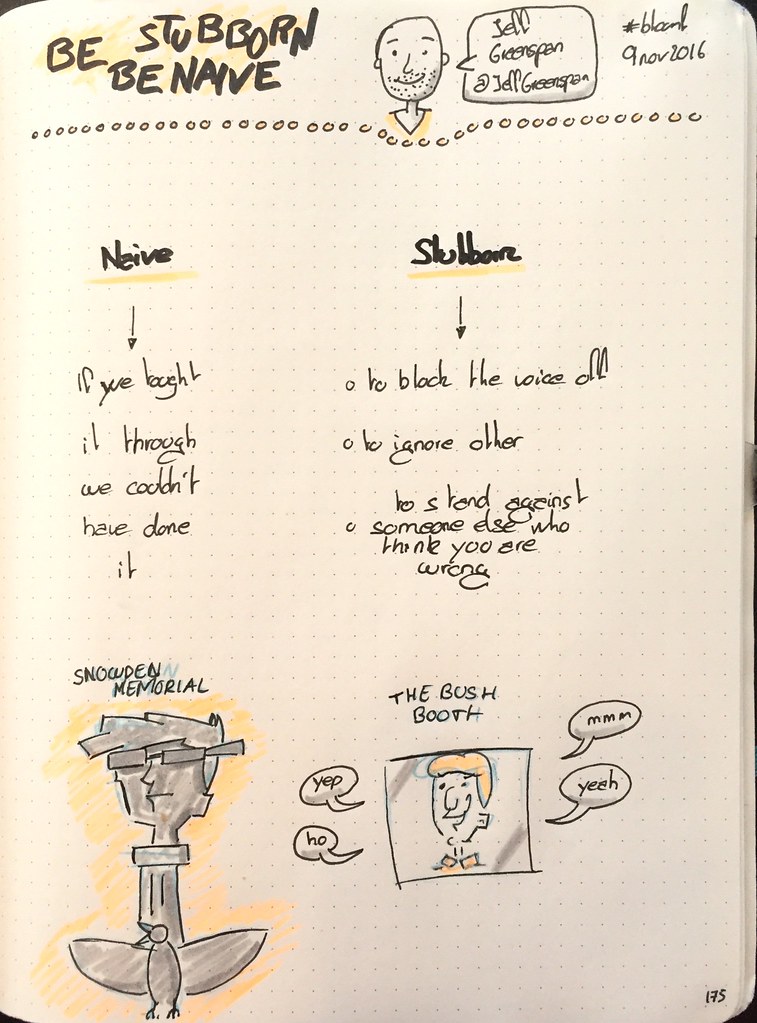 BE STUBBORN
BE NAIVE
Jeff
Greenspan
@JeffGreenspan
9 nov 2016
Naive
Stubborn
If we tought
it through
we couldn't
have done
it
o to block the voice off
o to ignore other
to stand against
o someone else who
think you are
wrong
SNOWDEN
MEMORIAL
THE BUSH
BOOTH
yep
ho
mmm
yeah
175